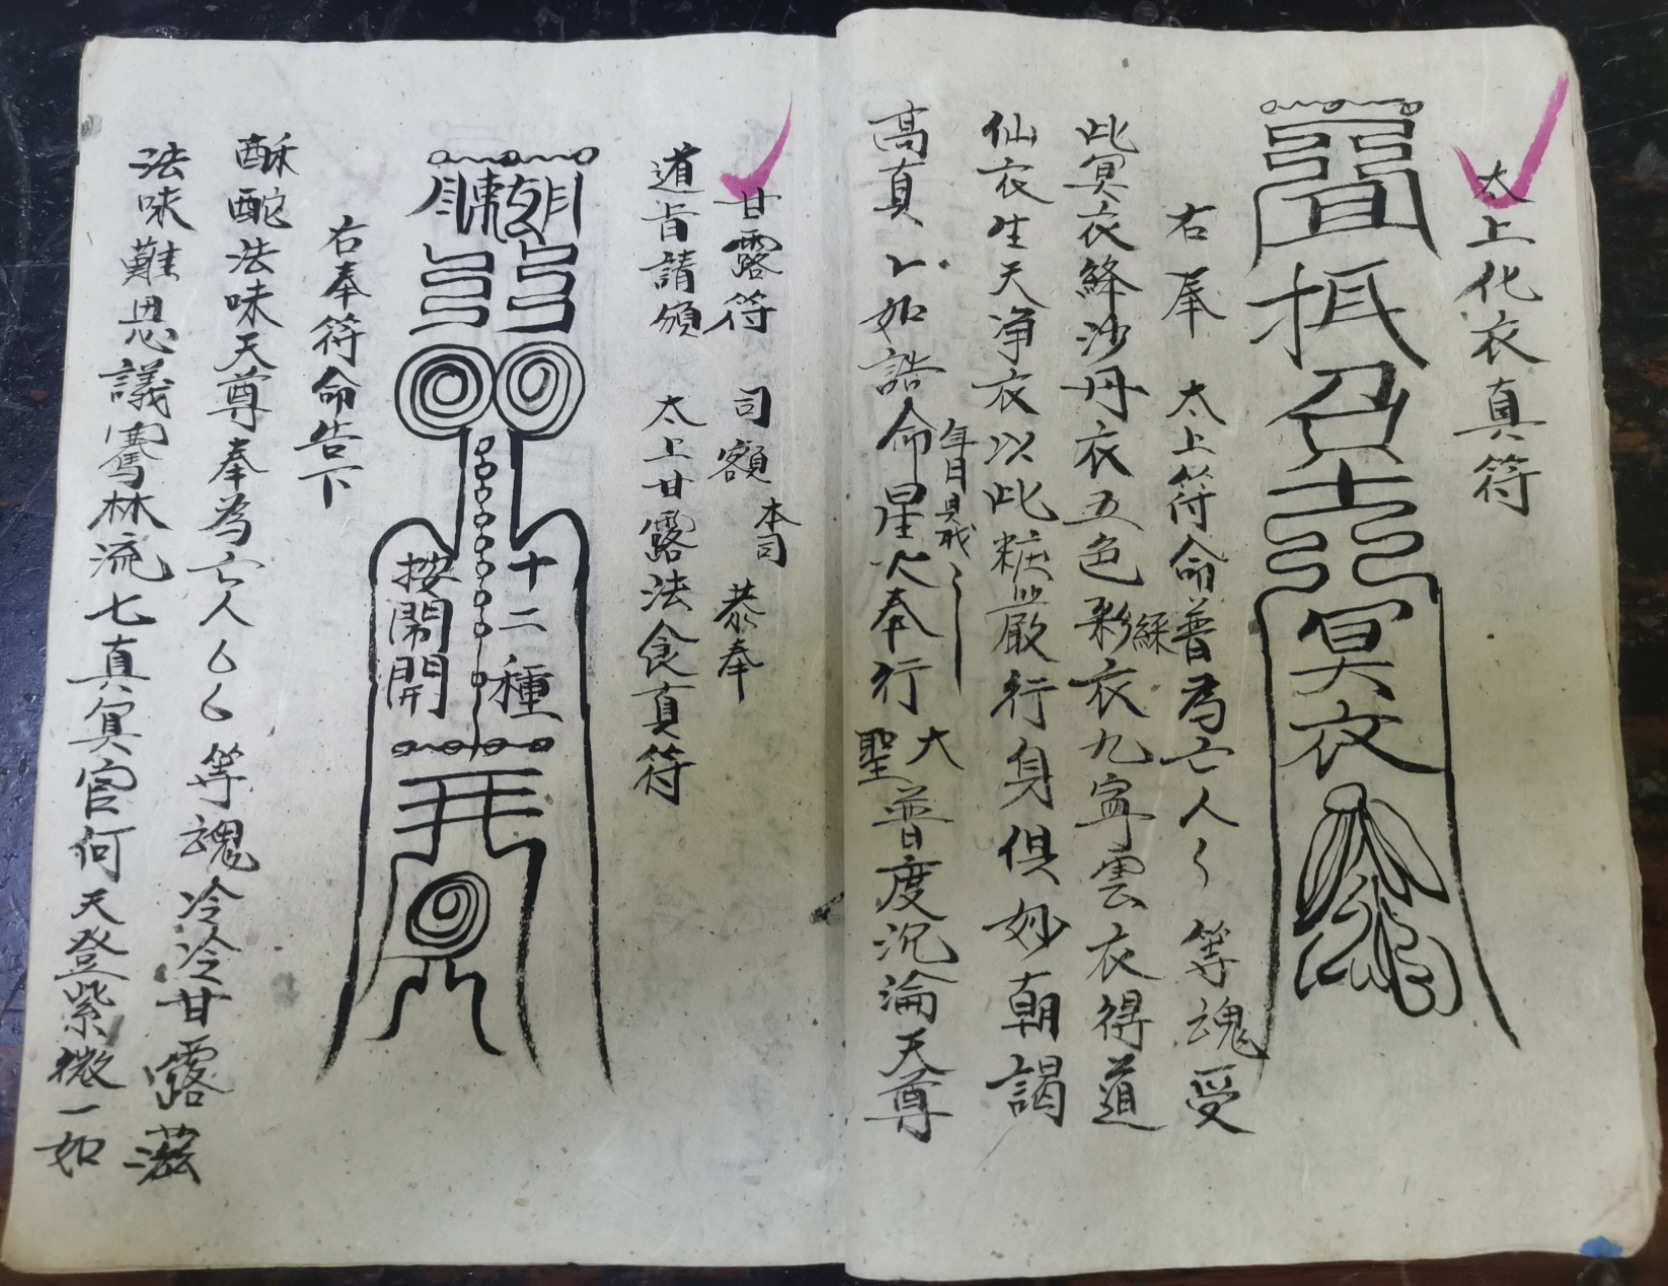 太上化衣真符
抵召
冥衣
右奉 太上符命普為亡人 等魂受
此冥衣絳沙丹衣五色彩綵衣九寧雲衣得道
仙衣生天净衣以此粧嚴行身俱妙朝謁
高真 如誥命星火奉行
年月具我
大聖普度沉淪天尊
甘露符 司額 本司 恭奉
道旨請頒 太上甘露法食真符
十二種
按開開
右奉符命告下
酥酡法味天尊奉為亡人 等魂冷冷甘露滋
法味難思議騫林流七真冥官何天登紫微一如